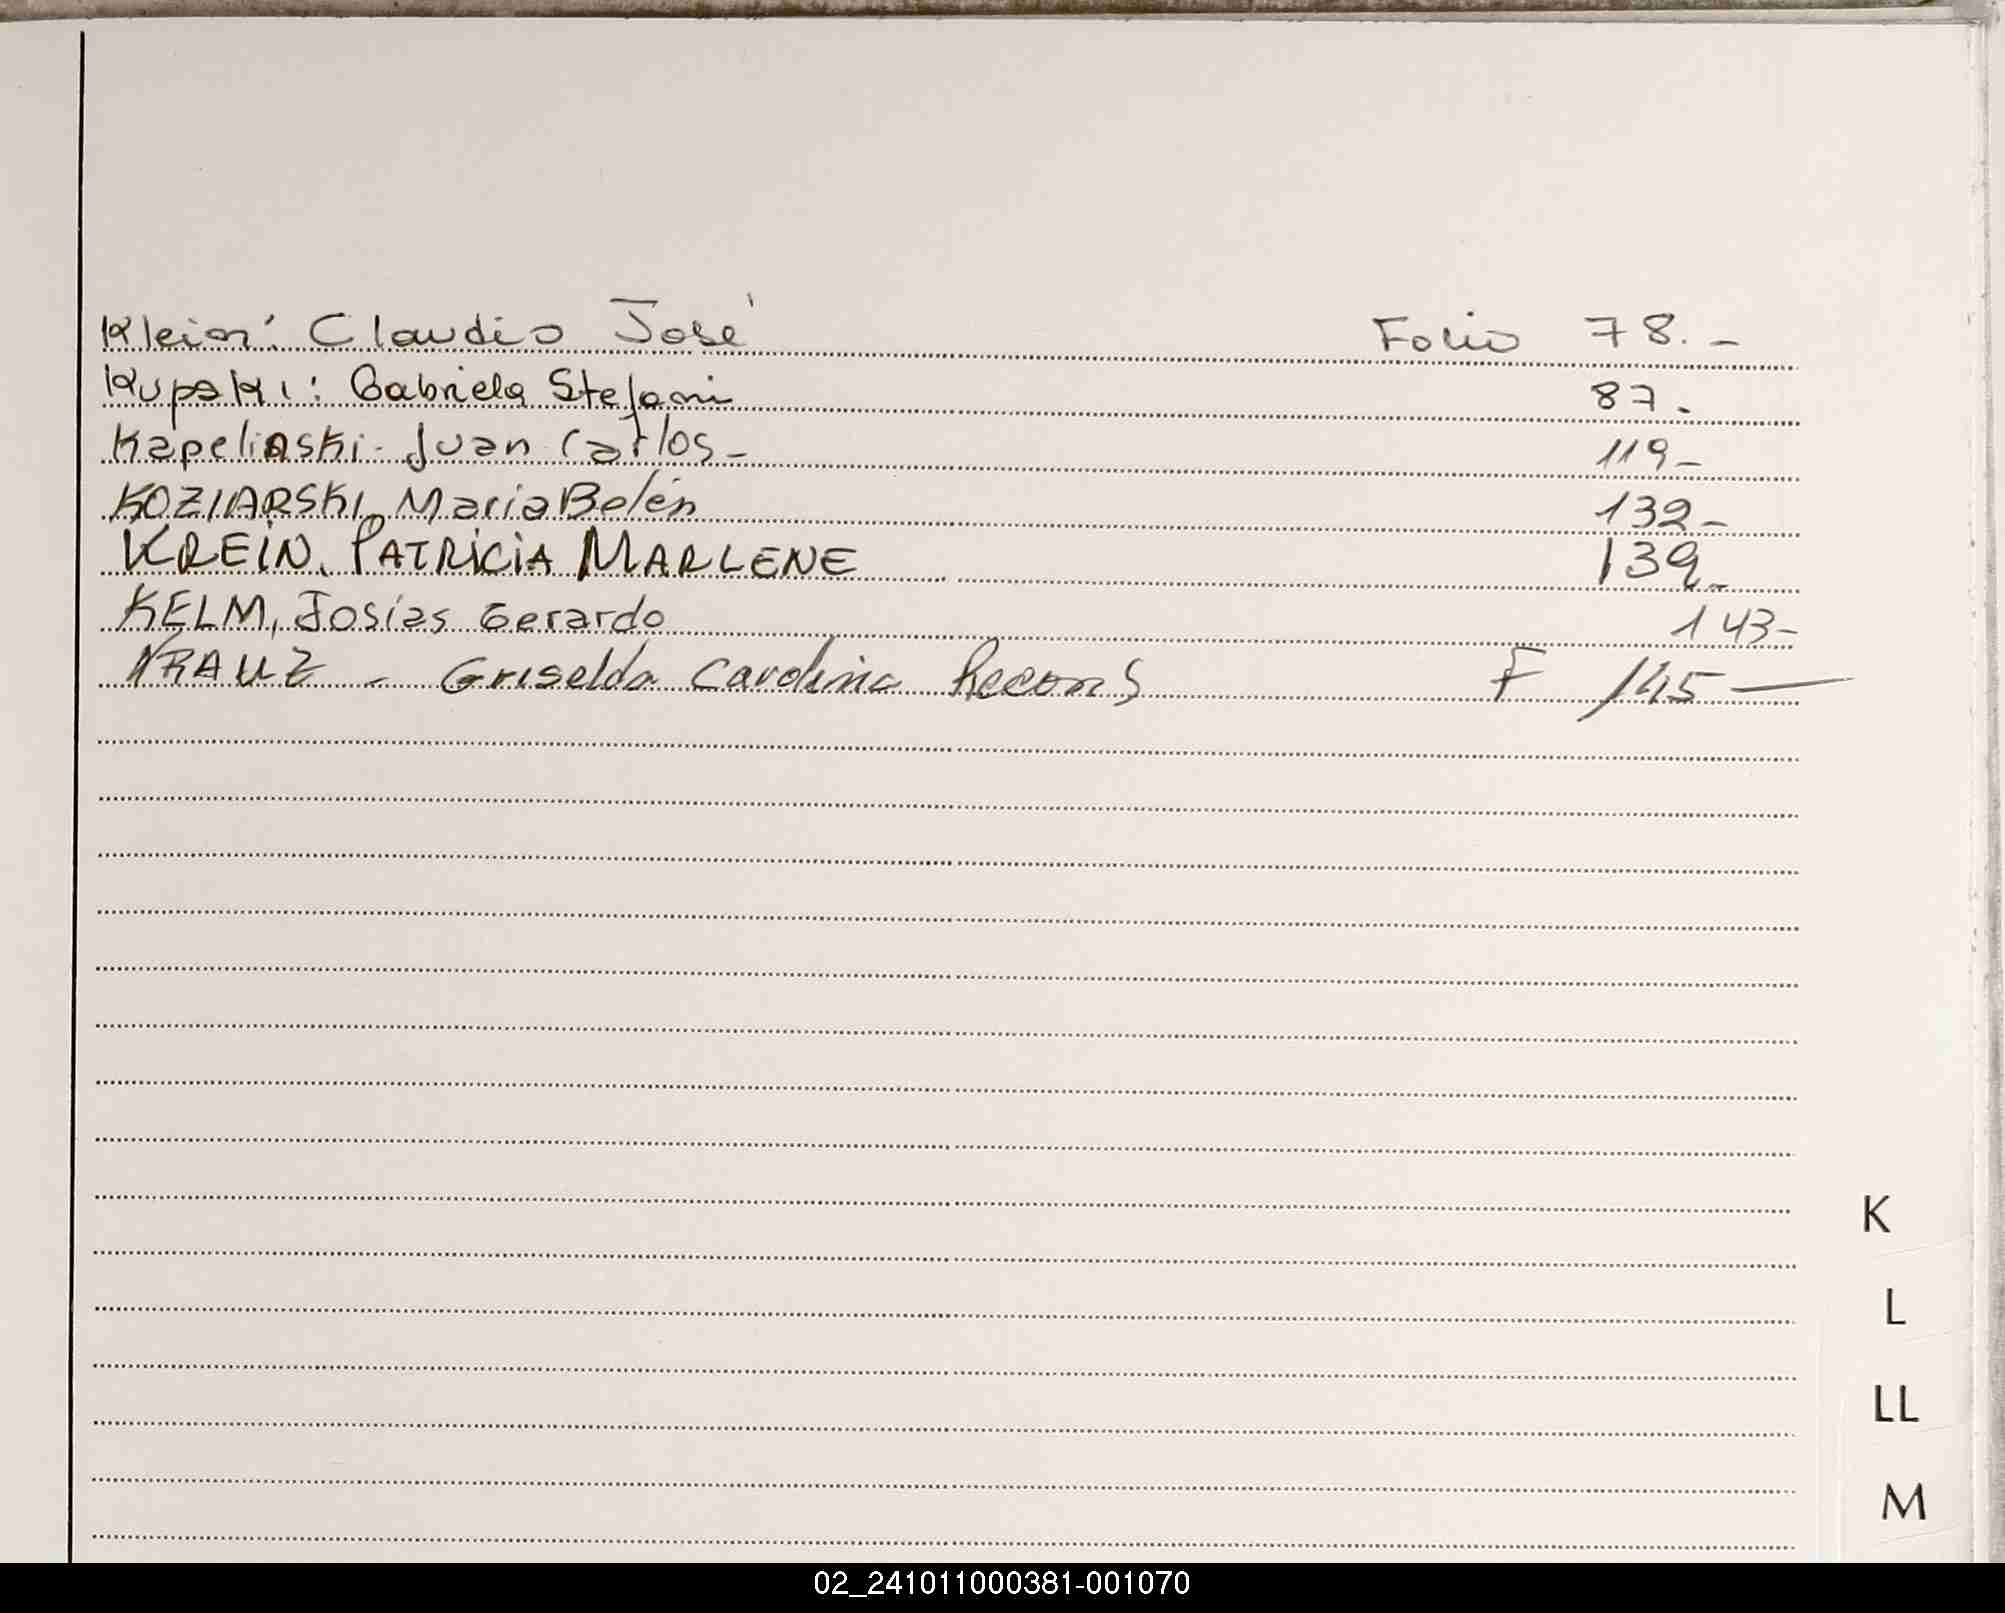 Klein: Claudio José Folio 78.-
Kupski: Gabriela Stefani 87.-
Kapelinski- Juan Carlos- 119-
KOZIARSKI, Maria Belén 132-
KREIN, PATRICIA MARLENE 139-
KELM, Josías Gerardo 143-
KRAUZ - Griselda Carolina Recons F 145-
K
L
LL
M
02_241011000381-001070